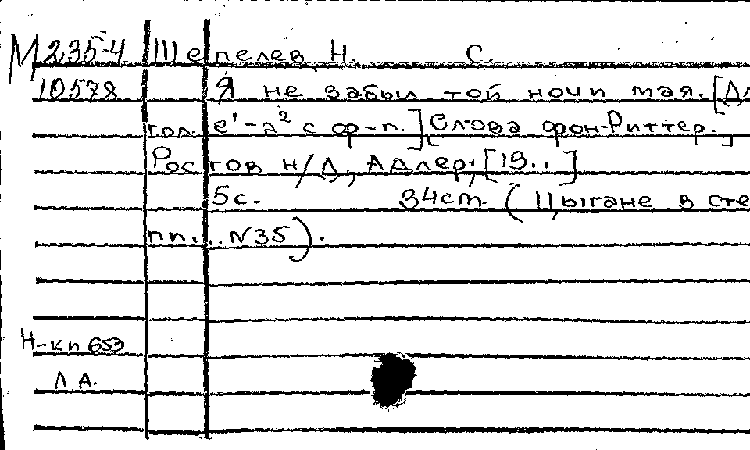 М 235-4 Шепелев Н. С.
10578 Я не забыл той ночи мая. [Дл
гол. e'-a² с ф-п.] [Слова фон-Риттер.]
Ростов н/Д, Адлер, [19..]
5с. 34ст. (Цыгане в сте
пи... N35).
Н-кп 653
Л А.